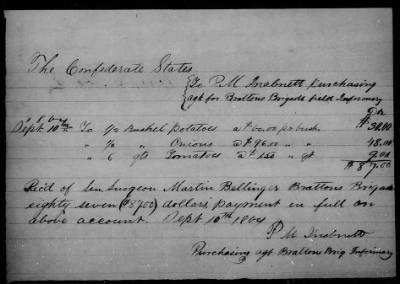 The Confederate States
To P M Inabnett purchasing
agt for Brattons Brigade field Infirmary
Dr
1864
Sept 10th To 1/2 Bushel Potatoes at 60.00 pr bush $ 30.00
" 1/2 " Onions at $96.00 " " 48.00
" 6 qts Tomatoes at $1.50 " qt 9.00
$ 87.00
Rec'd of Sen Surgeon Martin Bellinger Brattons Brigade
eighty seven ($8700) dollars payment in full on
above account. Sept 10th 1864
P M Inabnett
Purchasing agt Brattons Brig Infirmary